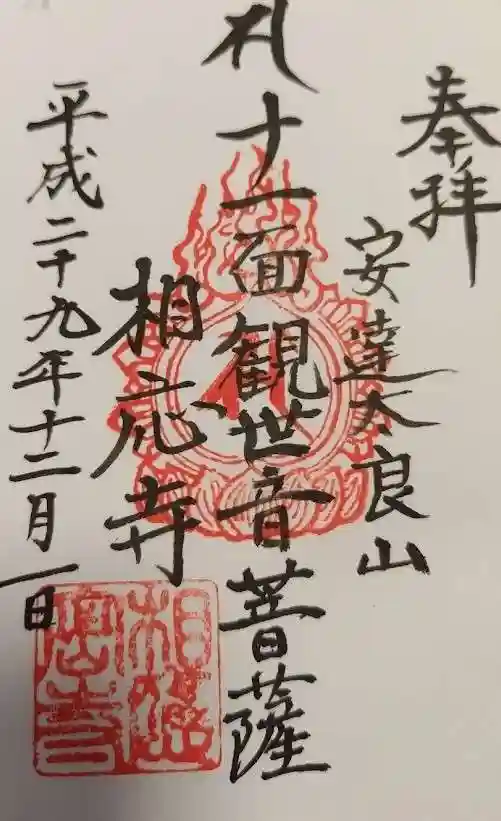 奉拝
安達太良山
札 十一面観世音菩薩
相応寺
平成二十九年十二月一日
相應寺